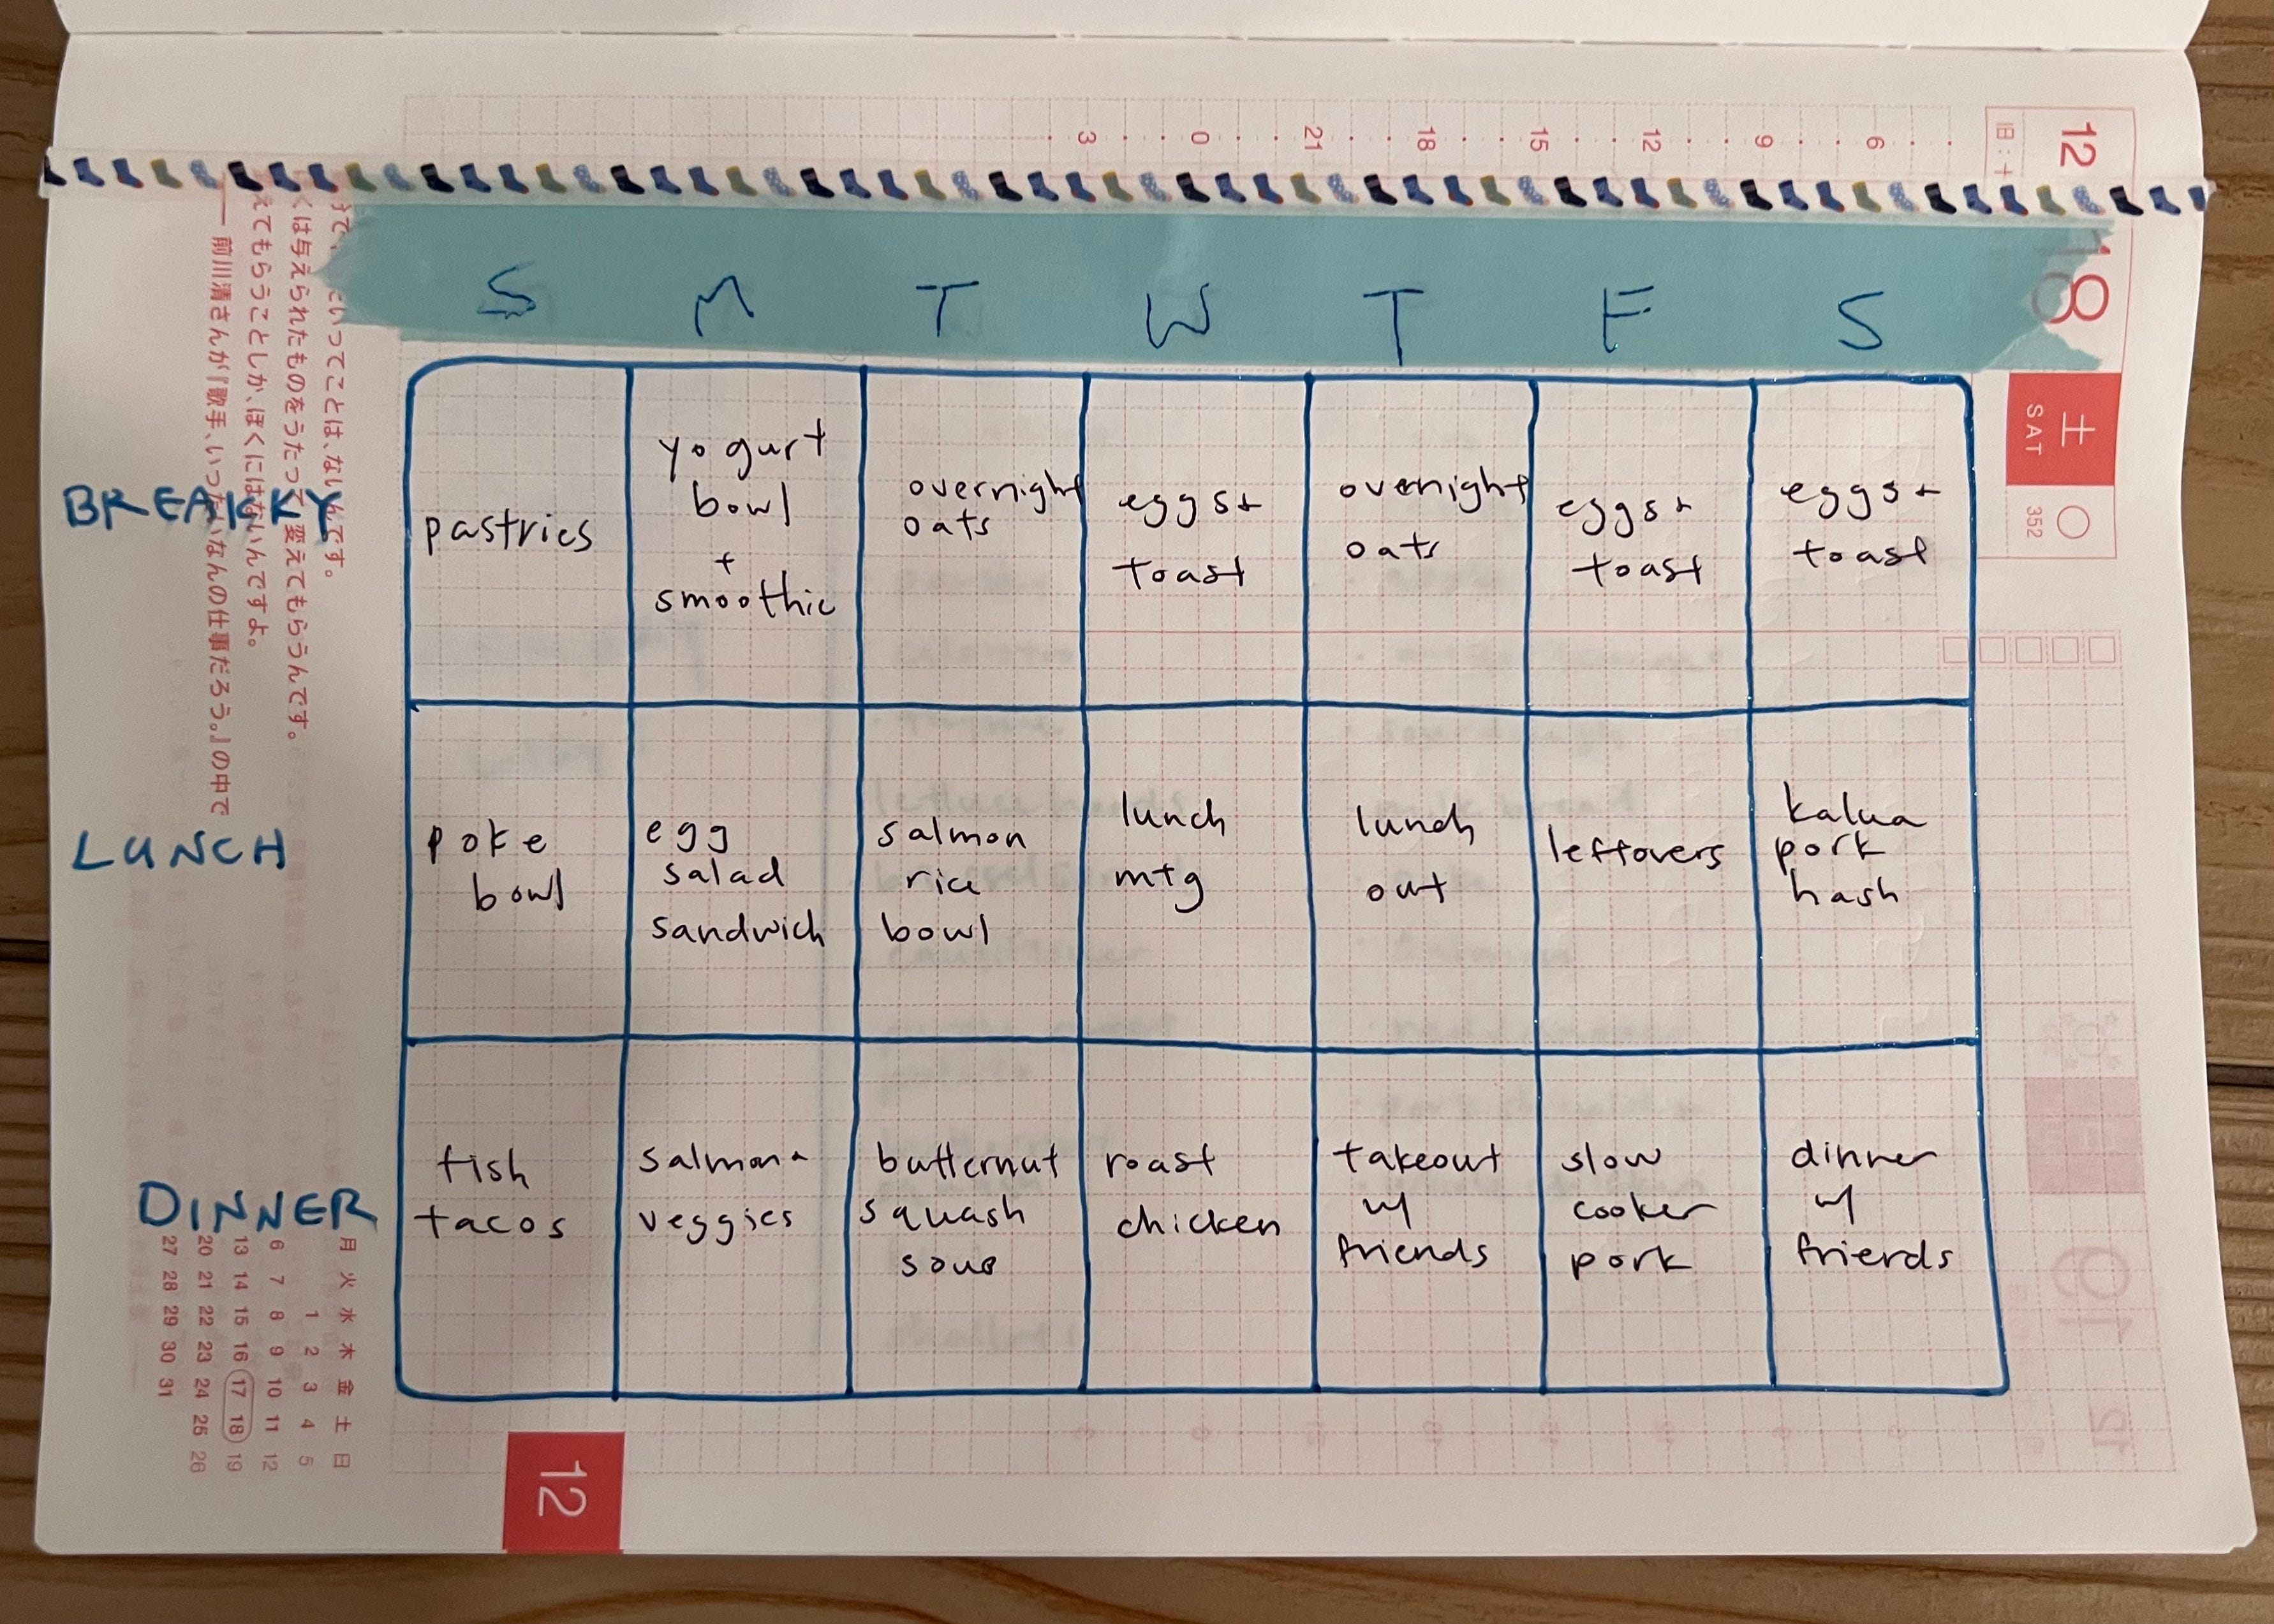 3 0 21 18 15 12 9 6
12
18
土
SAT
352
S M T W T F S
BREAKKY
pastries
yogurt
bowl
+
smoothie
overnight
oats
eggs+
toast
overnight
oats
eggs+
toast
eggs+
toast
LUNCH
poke
bowl
egg
salad
sandwich
salmon
rice
bowl
lunch
mtg
lunch
out
leftovers
kalua
pork
hash
DINNER
fish
tacos
salmon+
veggies
butternut
squash
soup
roast
chicken
takeout
w/
friends
slow
cooker
pork
dinner
w/
friends
いってことは、ないんです。
くは与えられたものをうたって変えてもらうんです。
えてもらうことしか、ぼくにはないんですよ。
── 前川清さんが『歌手、いったいなんの仕事だろう。』の中で
月 火 水 木 金 土 日
1 2 3 4 5
6 7 8 9 10 11 12
13 14 15 16 17 18 19
20 21 22 23 24 25 26
27 28 29 30 31
12